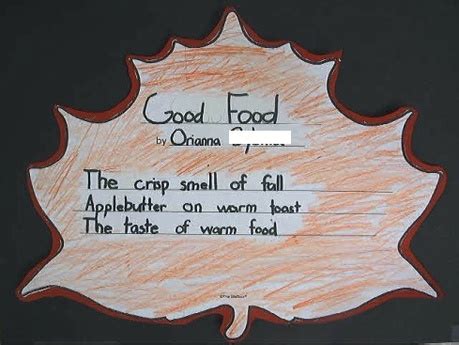 Good Food
by Orianna
The crisp smell of fall
Applebutter on warm toast
The taste of warm food